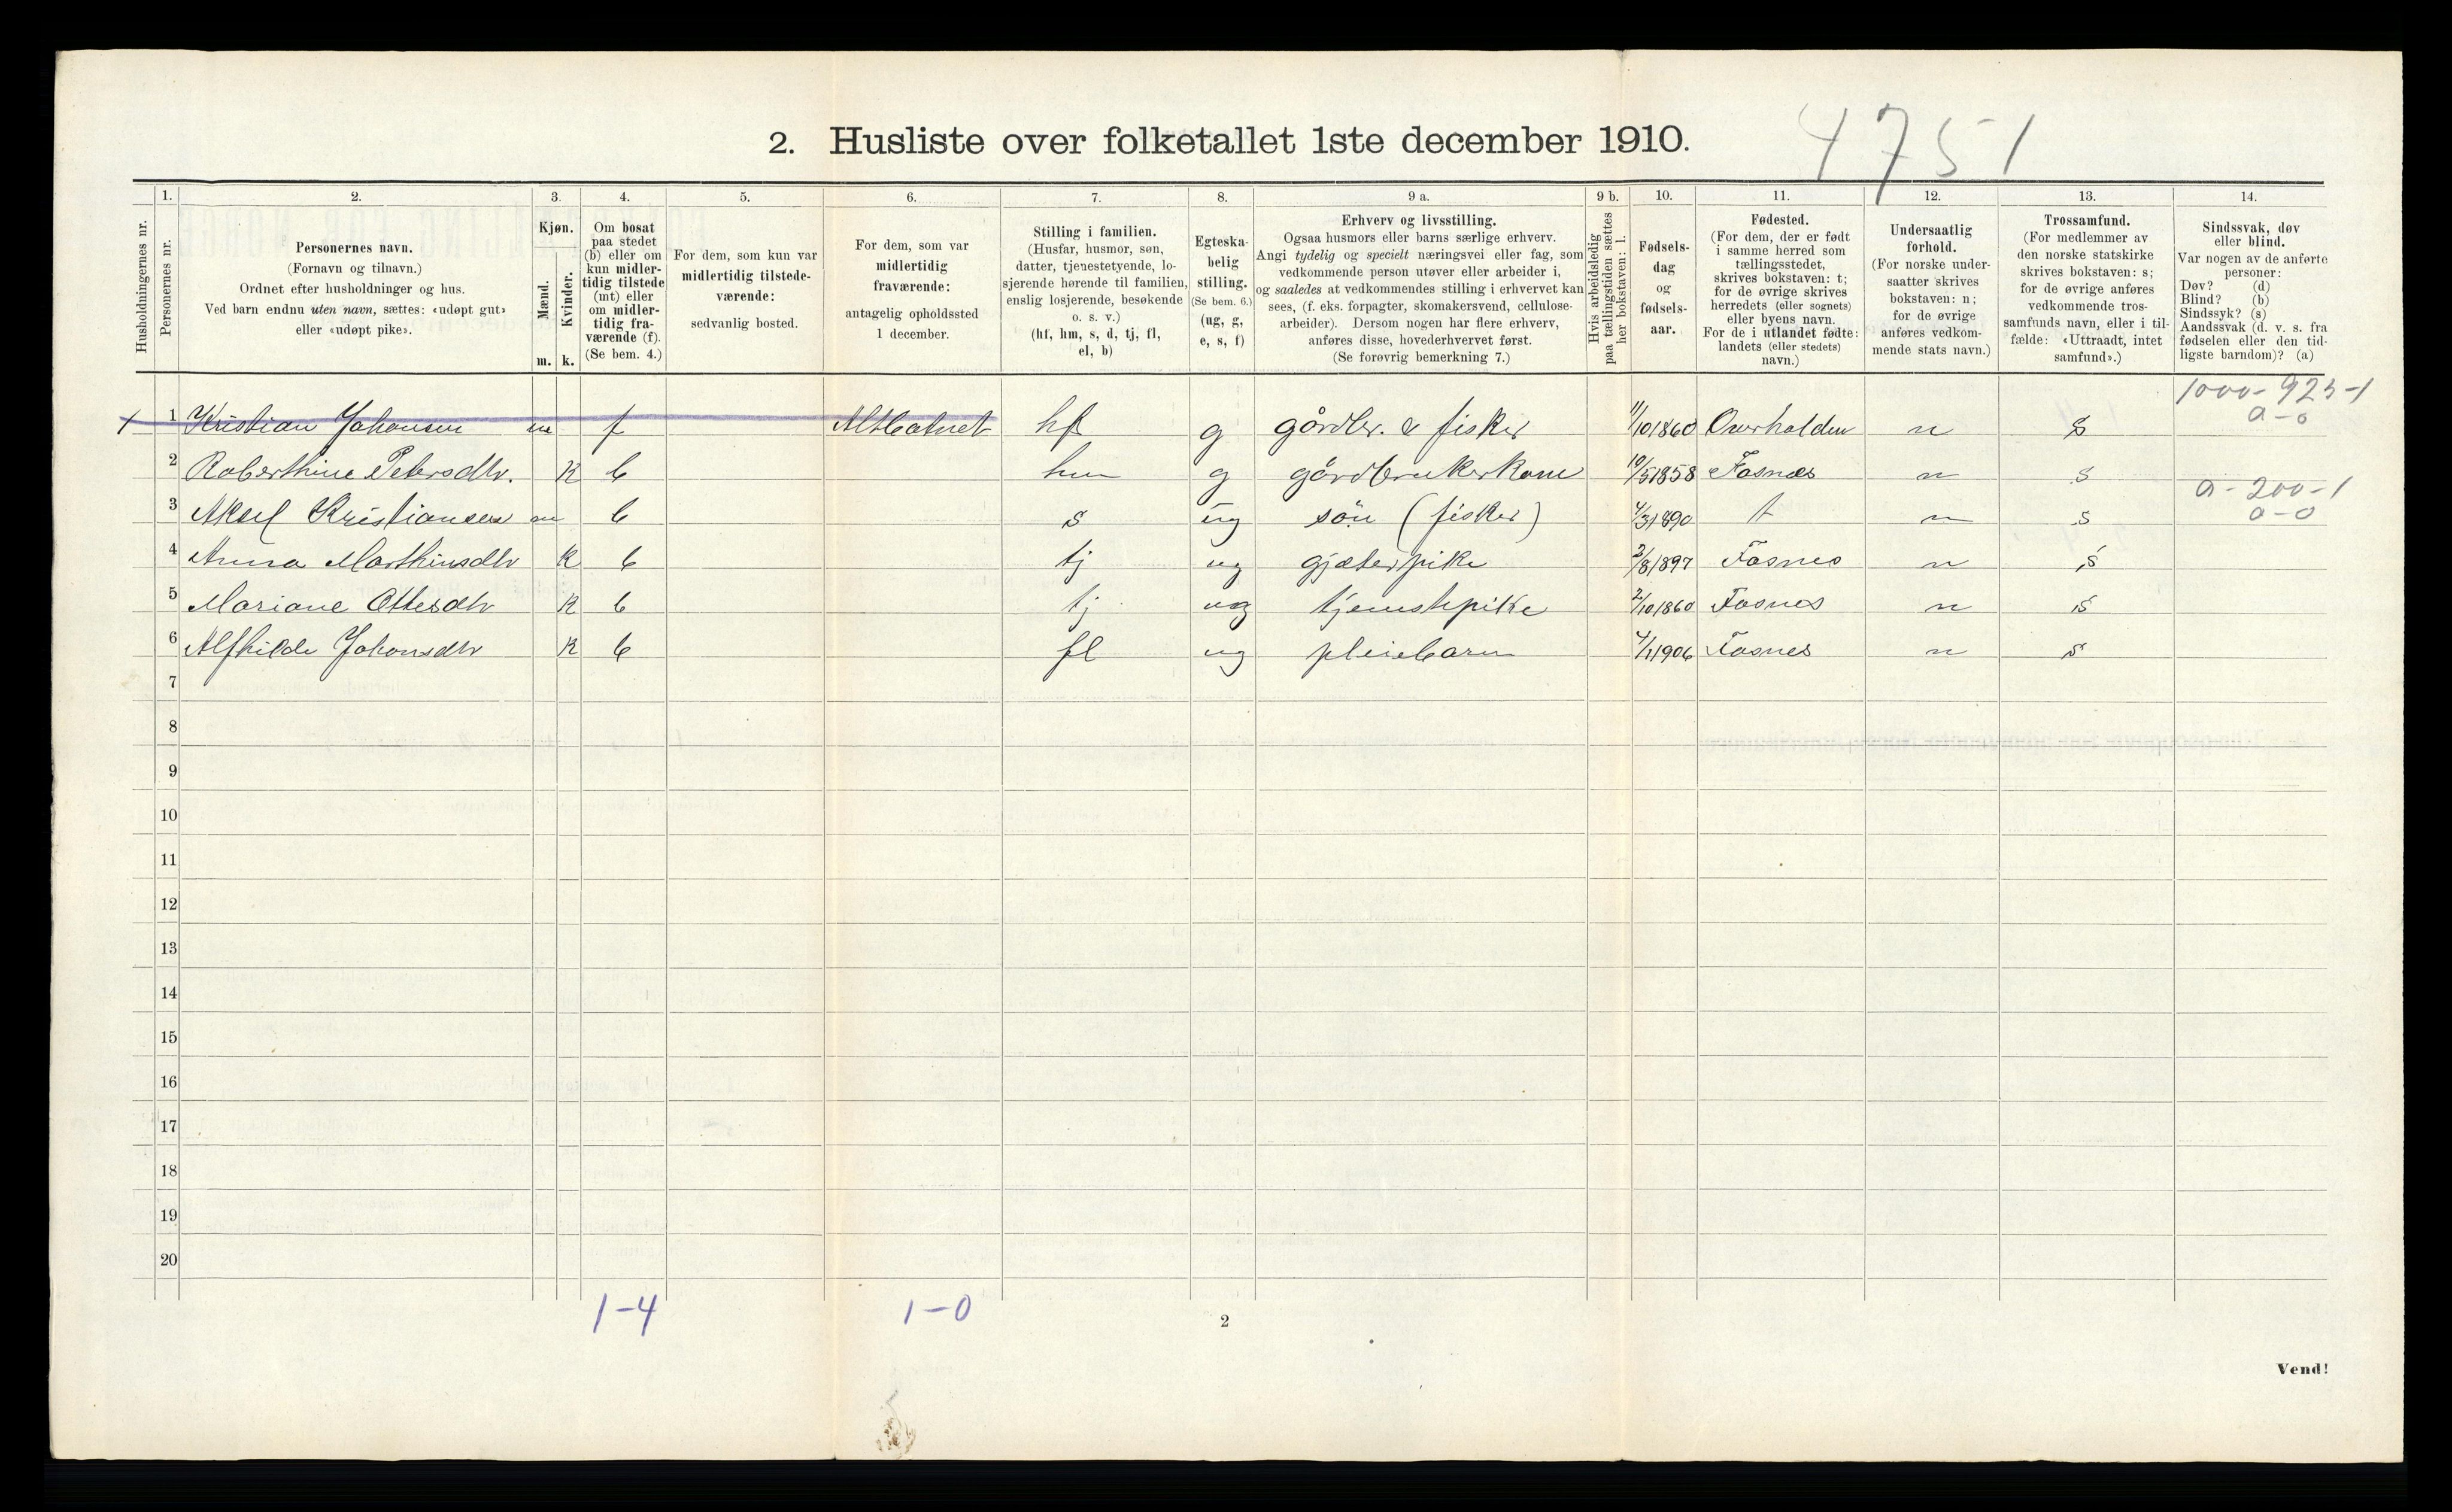 4751
2. Husliste over folketallet 1ste december 1910.
Husholdningernes nr.
1.
Personernes nr.
2.
Personernes navn.
(Fornavn og tilnavn.)
Ordnet efter husholdninger og hus.
Ved barn endnu uten navn, sættes: «udøpt gut»
eller «udøpt pike».
3.
Kjøn.
Mænd.
Kvinder.
m. k.
4.
Om bosat
paa stedet
(b) eller om
kun midler-
tidig tilstede
(mt) eller
om midler-
tidig fra-
værende (f).
(Se bem. 4.)
5.
For dem, som kun var
midlertidig tilstede-
værende:
sedvanlig bosted.
6.
For dem, som var
midlertidig
fraværende:
antagelig opholdssted
1 december.
7.
Stilling i familien.
(Husfar, husmor, søn,
datter, tjenestetyende, lo-
sjerende hørende til familien,
enslig losjerende, besøkende
o. s. v.)
(hf, hm, s, d, tj, fl,
el, b)
8.
Egteska-
belig
stilling.
(Se bem. 6.)
(ug, g,
e, s, f)
9 a.
Erhverv og livsstilling.
Ogsaa husmors eller barns særlige erhverv.
Angi tydelig og specielt næringsvei eller fag, som
vedkommende person utøver eller arbeider i,
og saaledes at vedkommendes stilling i erhvervet kan
sees, (f. eks. forpagter, skomakersvend, cellulose-
arbeider). Dersom nogen har flere erhverv,
anføres disse, hovederhvervet først.
(Se forøvrig bemerkning 7.)
9 b.
Hvis arbeidsledig
paa tællingstiden sættes
her bokstaven: l.
10.
Fødsels-
dag
og
fødsels-
aar.
11.
Fødested.
(For dem, der er født
i samme herred som
tællingsstedet,
skrives bokstaven: t;
for de øvrige skrives
herredets (eller sognets)
eller byens navn.
For de i utlandet fødte:
landets (eller stedets)
navn.)
12.
Undersaatlig
forhold.
(For norske under-
saatter skrives
bokstaven: n;
for de øvrige
anføres vedkom-
mende stats navn.)
13.
Trossamfund.
(For medlemmer av
den norske statskirke
skrives bokstaven: s;
for de øvrige anføres
vedkommende tros-
samfunds navn, eller i til-
fælde: «Uttraadt, intet
samfund».)
14.
Sindssvak, døv
eller blind.
Var nogen av de anførte
personer:
Døv? (d)
Blind? (b)
Sindssyk? (s)
Aandssvak (d. v. s. fra
fødselen eller den tid-
ligste barndom)? (a)
1000-923-1
a-0
1 1 Kristian Johansen m f hf g gårdbr. & fisker 11/10 1860 Overhalden n s
2 Roberthine Petersdtr. K b hm g gårdbrukerkone 10/5 1858 Fosnæs n s
a-200-1
3 Aksel Kristiansen m b s ug søn (fisker) 4/3 1890 t n s
a-0
4 Anna Marthinsdtr K b tj ug gjæterpike 2/8 1897 Fosnes n s
5 Mariane Ottesdtr K b tj ug tjenestepike 2/10 1860 Fosnes n s
6 Alfhilde Johansdtr K b fl ug pleiebarn 4/1 1906 Fosnes n s
7
8
9
10
11
12
13
14
15
16
17
18
19
20
1-4 1-0
2
Vend!